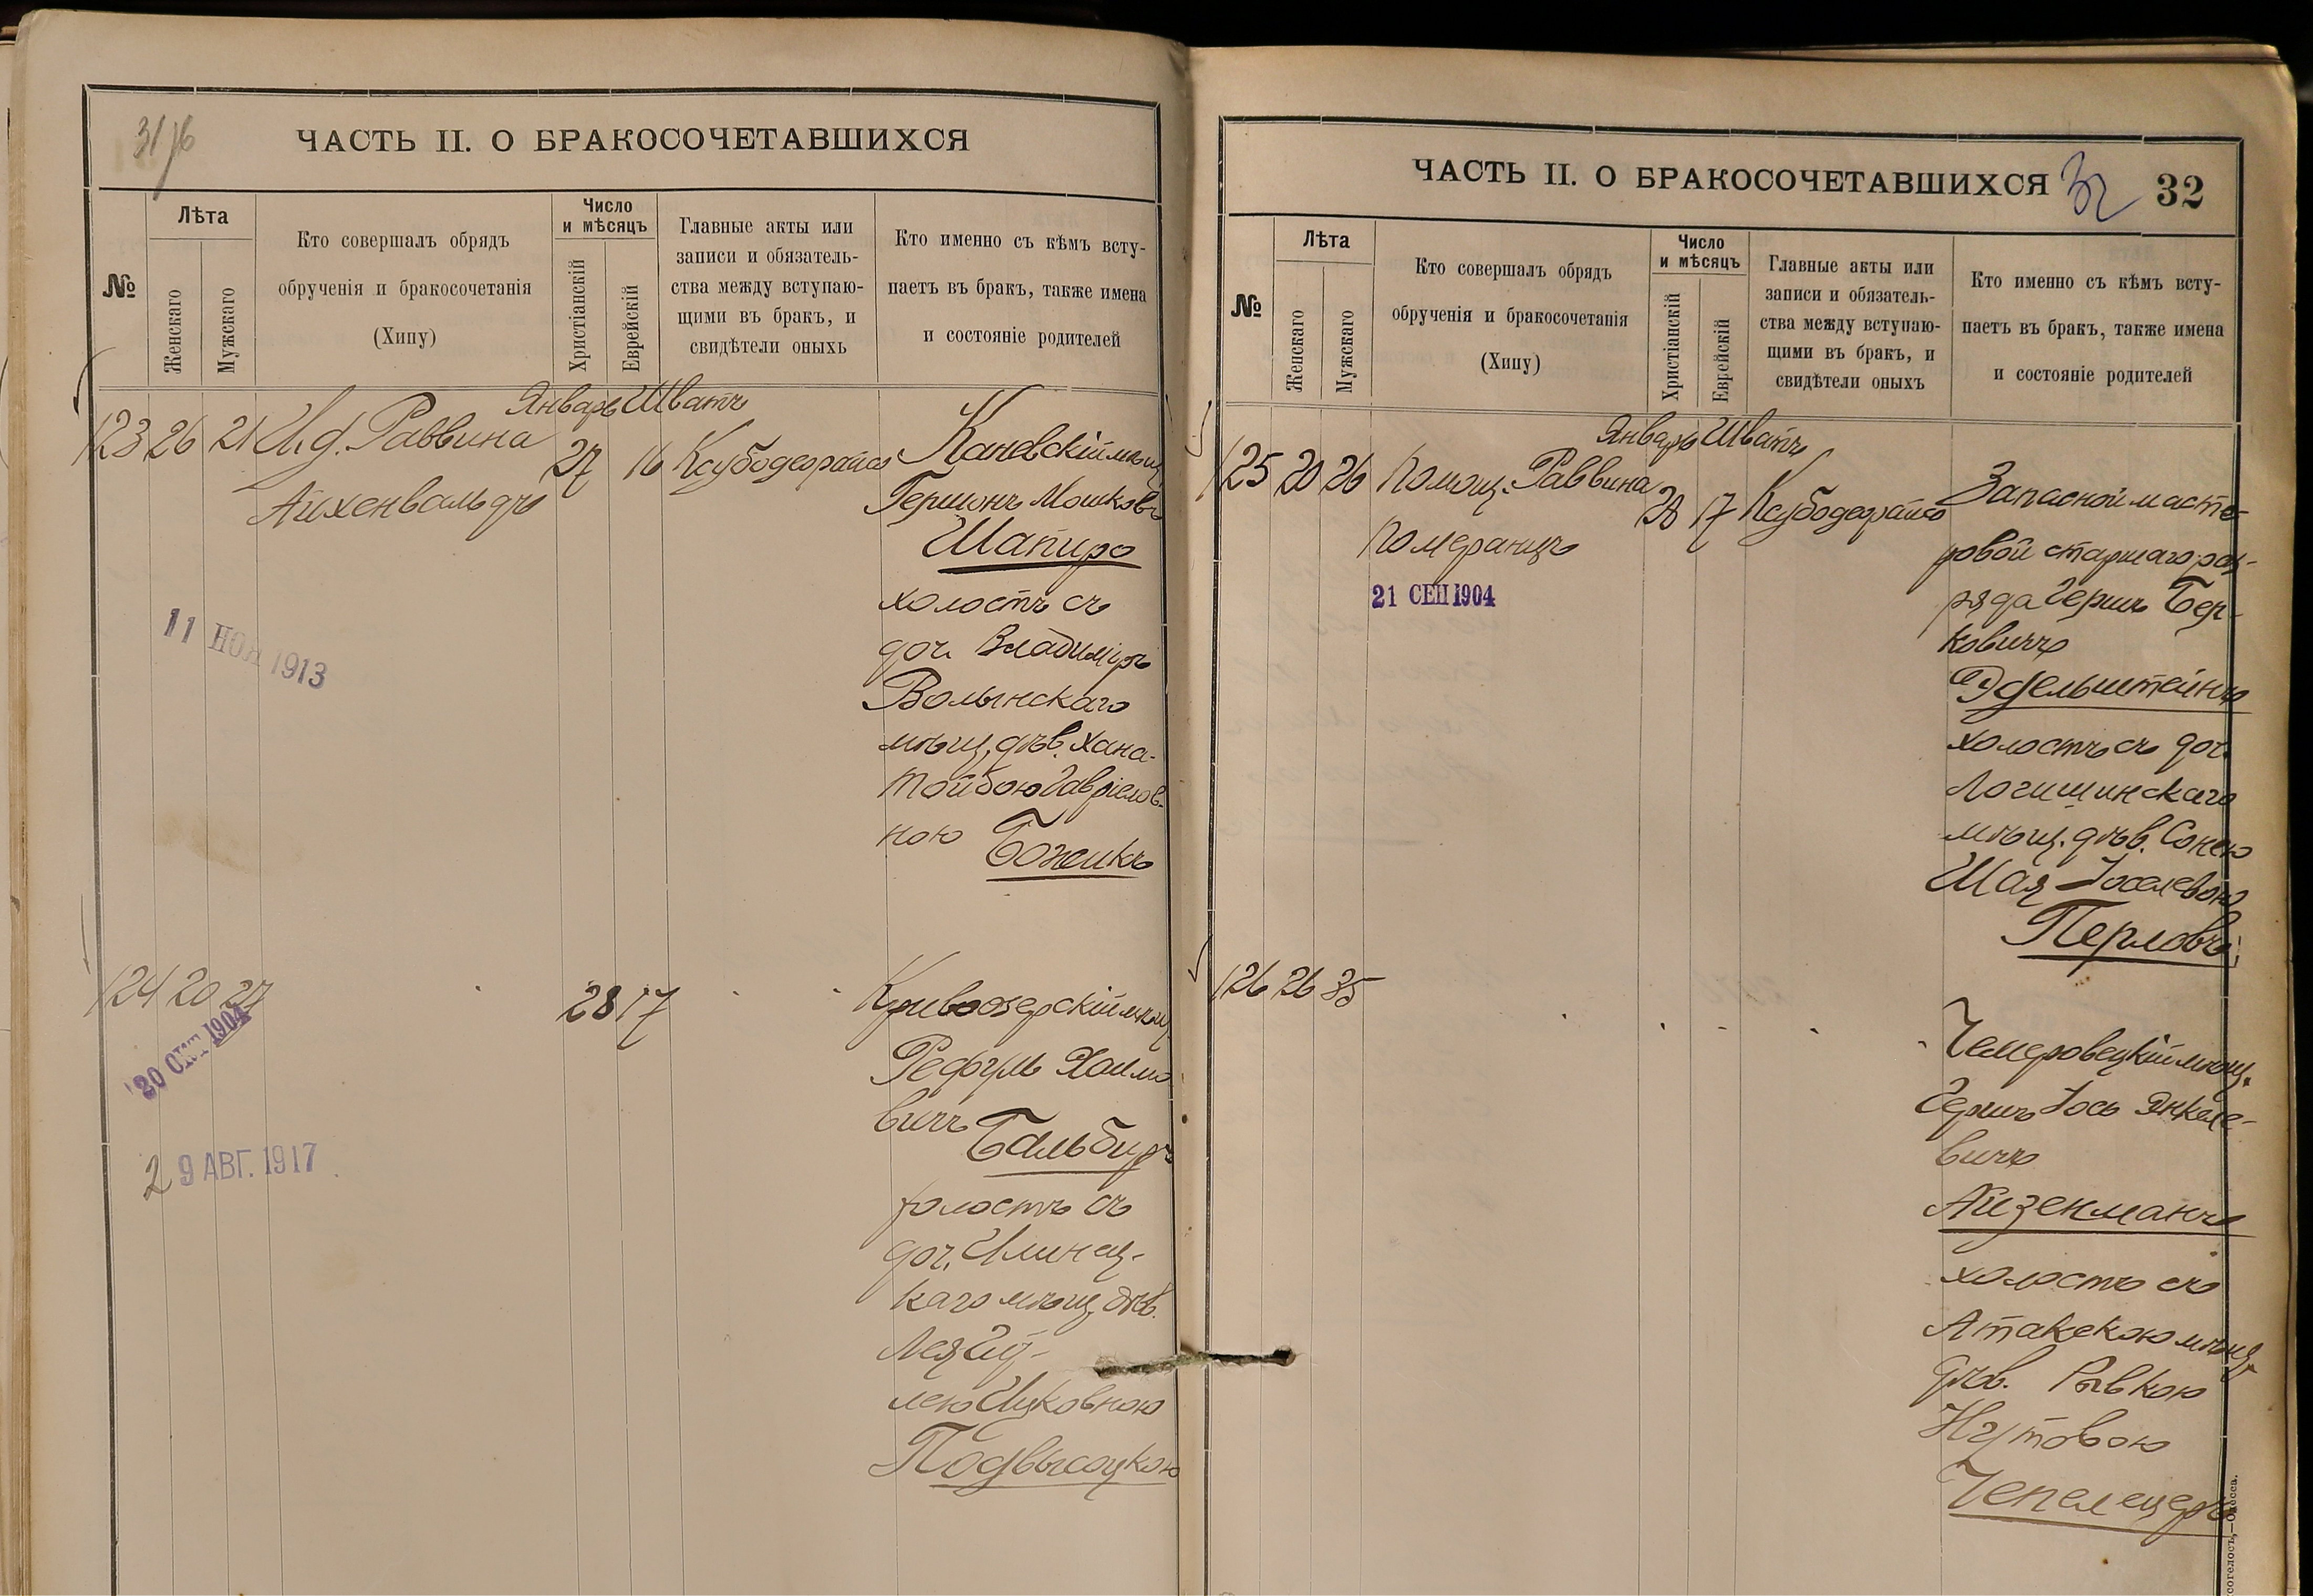 31/б
ЧАСТЬ II. О БРАКОСОЧЕТАВШИХСЯ
№
Лѣта
Женскаго
Мужскаго
Кто совершалъ обрядъ
обрученія и бракосочетанія
(Хипу)
Число
и мѣсяцъ
Христіанскій
Еврейскій
Главные акты или
записи и обязатель-
ства между вступаю-
щими въ бракъ, и
свидѣтели оныхъ
Кто именно съ кѣмъ всту-
паетъ въ бракъ, также имена
и состояніе родителей
Январь Шватъ
123 26 21 И.д. Раввина 27 16 Ксубодеорайсо Каневскій мѣщ.
Айхенвальдъ
Гершонъ Мошковъ
Шапиро
холостъ съ
доч. Владиміръ
Волынскаго
мѣщ. дѣв. Хана-
Тойбою Гавріелов-
ною Божикъ
11 НОЯ 1913
124 20 27 28 17 Кривоозерскій мѣщ.
20 ОКТ 1904
Рефуль Хаимо
вичъ Бальбиръ
29 АВГ. 1917
холостъ съ
доч. Илинец-
каго мѣщ. дѣв.
Лея Гит-
лею Ицковною
Подвысоцкою
ЧАСТЬ II. О БРАКОСОЧЕТАВШИХСЯ
32
32
№
Лѣта
Женскаго
Мужскаго
Кто совершалъ обрядъ
обрученія и бракосочетанія
(Хипу)
Число
и мѣсяцъ
Христіанскій
Еврейскій
Главные акты или
записи и обязатель-
ства между вступаю-
щими въ бракъ, и
свидѣтели оныхъ
Кто именно съ кѣмъ всту-
паетъ въ бракъ, также имена
и состояніе родителей
Январь Шватъ
125 20 26 Помощ. Раввина 28 17 Ксубодеорайсо Запасной масте-
Померанцъ
21 СЕН 1904
ровой старшаго раз-
ряда Герш Бер-
ковичъ
Эдельштейнъ
холостъ съ доч.
Логишинскаго
мѣщ. дѣв. Сонею
Шая-Іоселевою
Перловъ
126 26 35
Чемеровецкій мѣщ.
Гершъ Іось Янкеле-
вичъ
Айзенманъ
холостъ съ
Атакскою мѣщ.
дѣв. Рывкою
Нутовою
Чепелецеръ